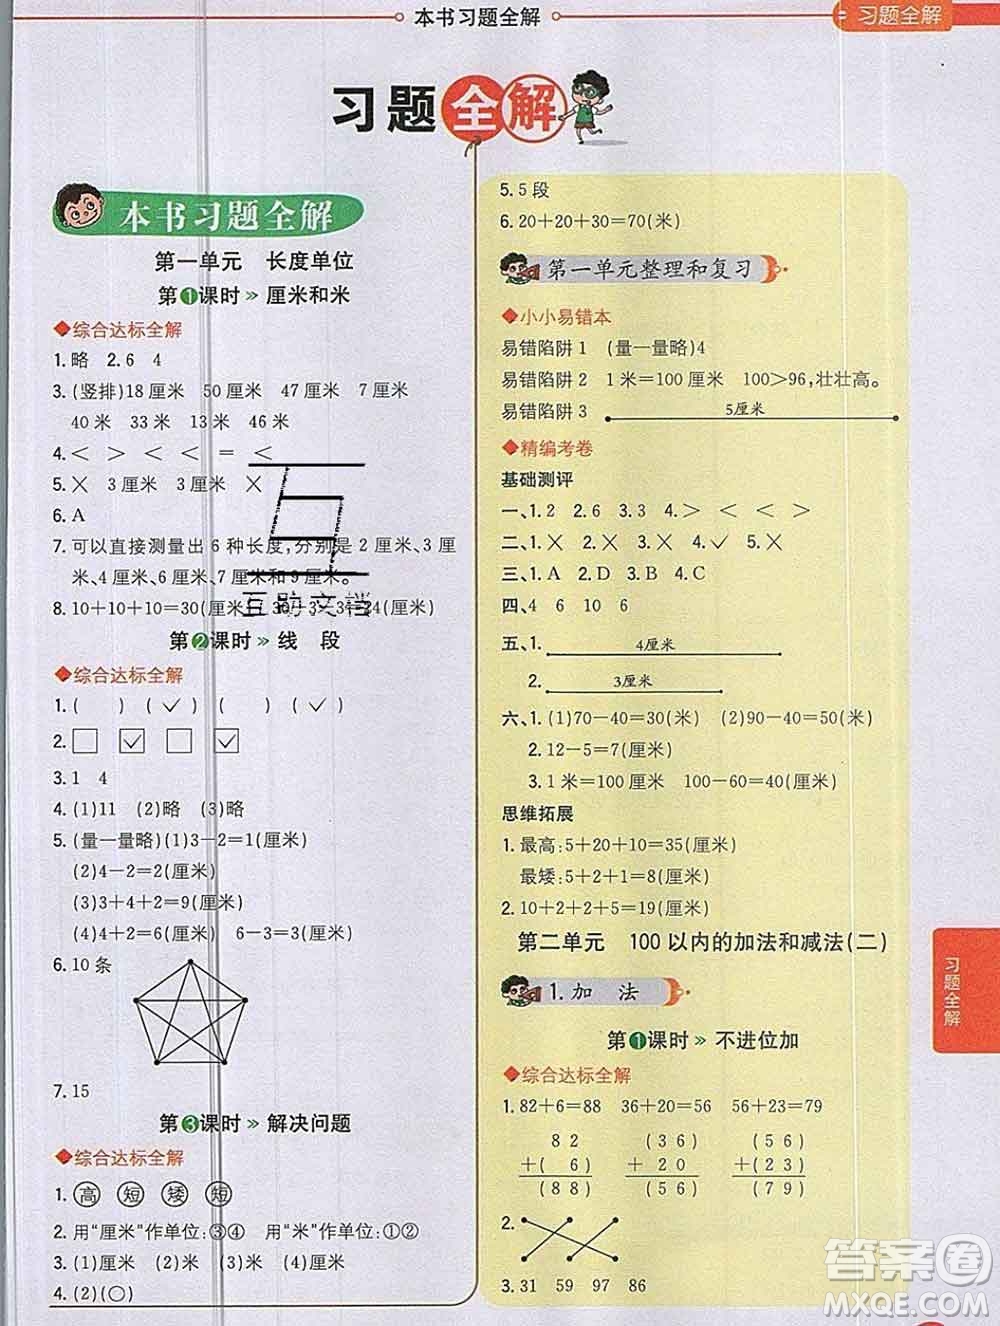 本书习题全解
习题全解
习题全解
本书习题全解
第一单元 长度单位
第1课时 » 厘米和米
◆综合达标全解
1. 略 2. 6 4
3. (竖排)18 厘米 50 厘米 47 厘米 7 厘米
40 米 33 米 13 米 46 米
4. < > < < = <
5. × 3 厘米 3 厘米 ×
6. A
7. 可以直接测量出 6 种长度,分别是 2 厘米、3 厘
米、4 厘米、6 厘米、7 厘米和 9 厘米。
8. 10+10+10=30(厘米) 30-3-3=24(厘米)
互助文档
第2课时 » 线 段
◆综合达标全解
1. ( ) (✓) ( ) (✓)
2. □ ☑ □ ☑
3. 1 4
4. (1)11 (2)略 (3)略
5. (量一量略)(1)3-2=1(厘米)
(2)4-2=2(厘米)
(3)3+4+2=9(厘米)
(4)4+2=6(厘米) 6-3=3(厘米)
6. 10 条
7. 15
第3课时 » 解决问题
◆综合达标全解
1. 高 短 矮 短
2. 用“厘米”作单位:③④ 用“米”作单位:①②
3. (1)厘米 (2)米 (3)厘米 (4)米
4. (2)(○)
5. 5 段
6. 20+20+30=70(米)
第一单元整理和复习
◆小小易错本
易错陷阱 1 (量一量略)4
易错陷阱 2 1 米=100 厘米 100>96,壮壮高。
易错陷阱 3 5厘米
◆精编考卷
基础测评
一、1. 2 2. 6 3. 3 4. > < < >
二、1. × 2. × 3. × 4. ✓ 5. ×
三、1. A 2. D 3. B 4. C
四、4 6 10 6
五、1. 4厘米
2. 3厘米
六、1. (1)70-40=30(米) (2)90-40=50(米)
2. 12-5=7(厘米)
3. 1 米=100 厘米 100-60=40(厘米)
思维拓展
1. 最高:5+20+10=35(厘米)
最矮:5+2+1=8(厘米)
2. 10+2+2+5=19(厘米)
第二单元 100 以内的加法和减法(二)
1. 加 法
第1课时 » 不进位加
◆综合达标全解
1. 82+6=88 36+20=56 56+23=79
8 2 (3 6) (5 6)
+( 6) + 2 0 +(2 3)
(8 8) (5 6) (7 9)
2.
3. 31 59 97 86
习题全解
答案圈
MXQE.COM